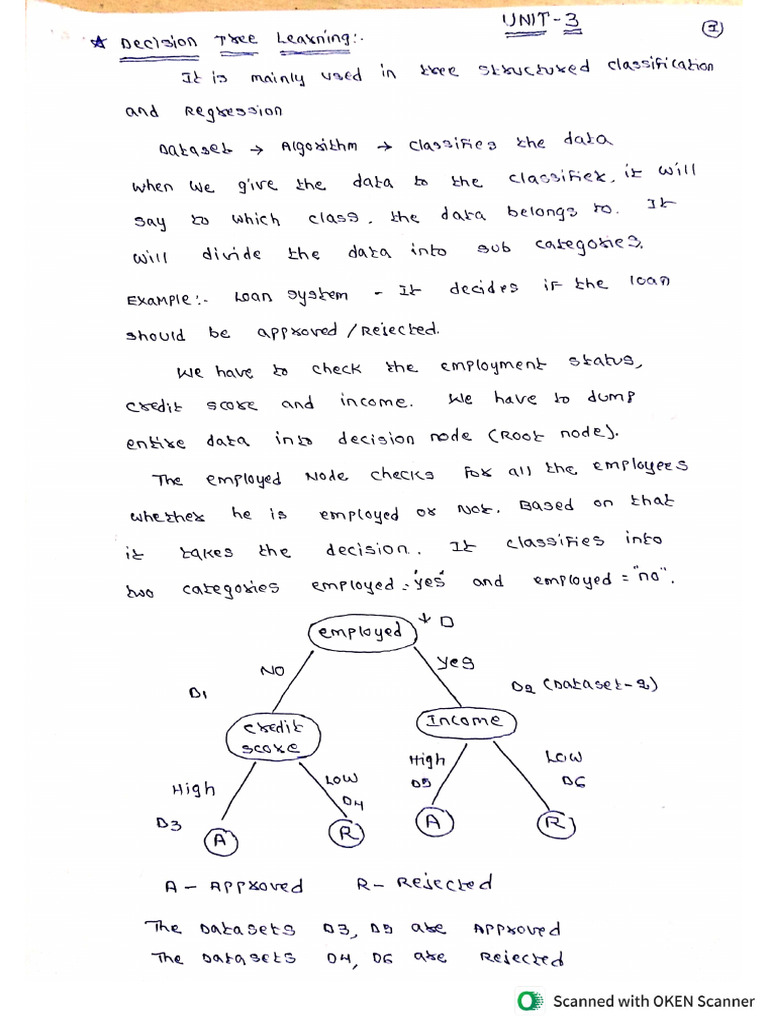 UNIT-3
1
* Decision Tree Learning:-
It is mainly used in tree structured classification
and Regression
Dataset → Algorithm → classifies the data
when we give the data to the classifier, it will
say to which class, the data belongs to. It
will divide the data into sub categories.
Example:- Loan system - It decides if the loan
should be approved / Rejected.
We have to check the employment status,
credit score and income. We have to dump
entire data into decision node (Root node).
The employed Node checks for all the employees
whether he is employed or Not. Based on that
it takes the decision. It classifies into
two categories employed = "yes" and employed = "no".
employed ↓ D
NO
yes
D1
D2 (Dataset-2)
credit
score
Income
High
Low
High
Low
D3
D4
D5
D6
A
R
A
R
A - Approved R - Rejected
The Datasets D3, D5 are Approved
The Datasets D4, D6 are Rejected
Scanned with OKEN Scanner